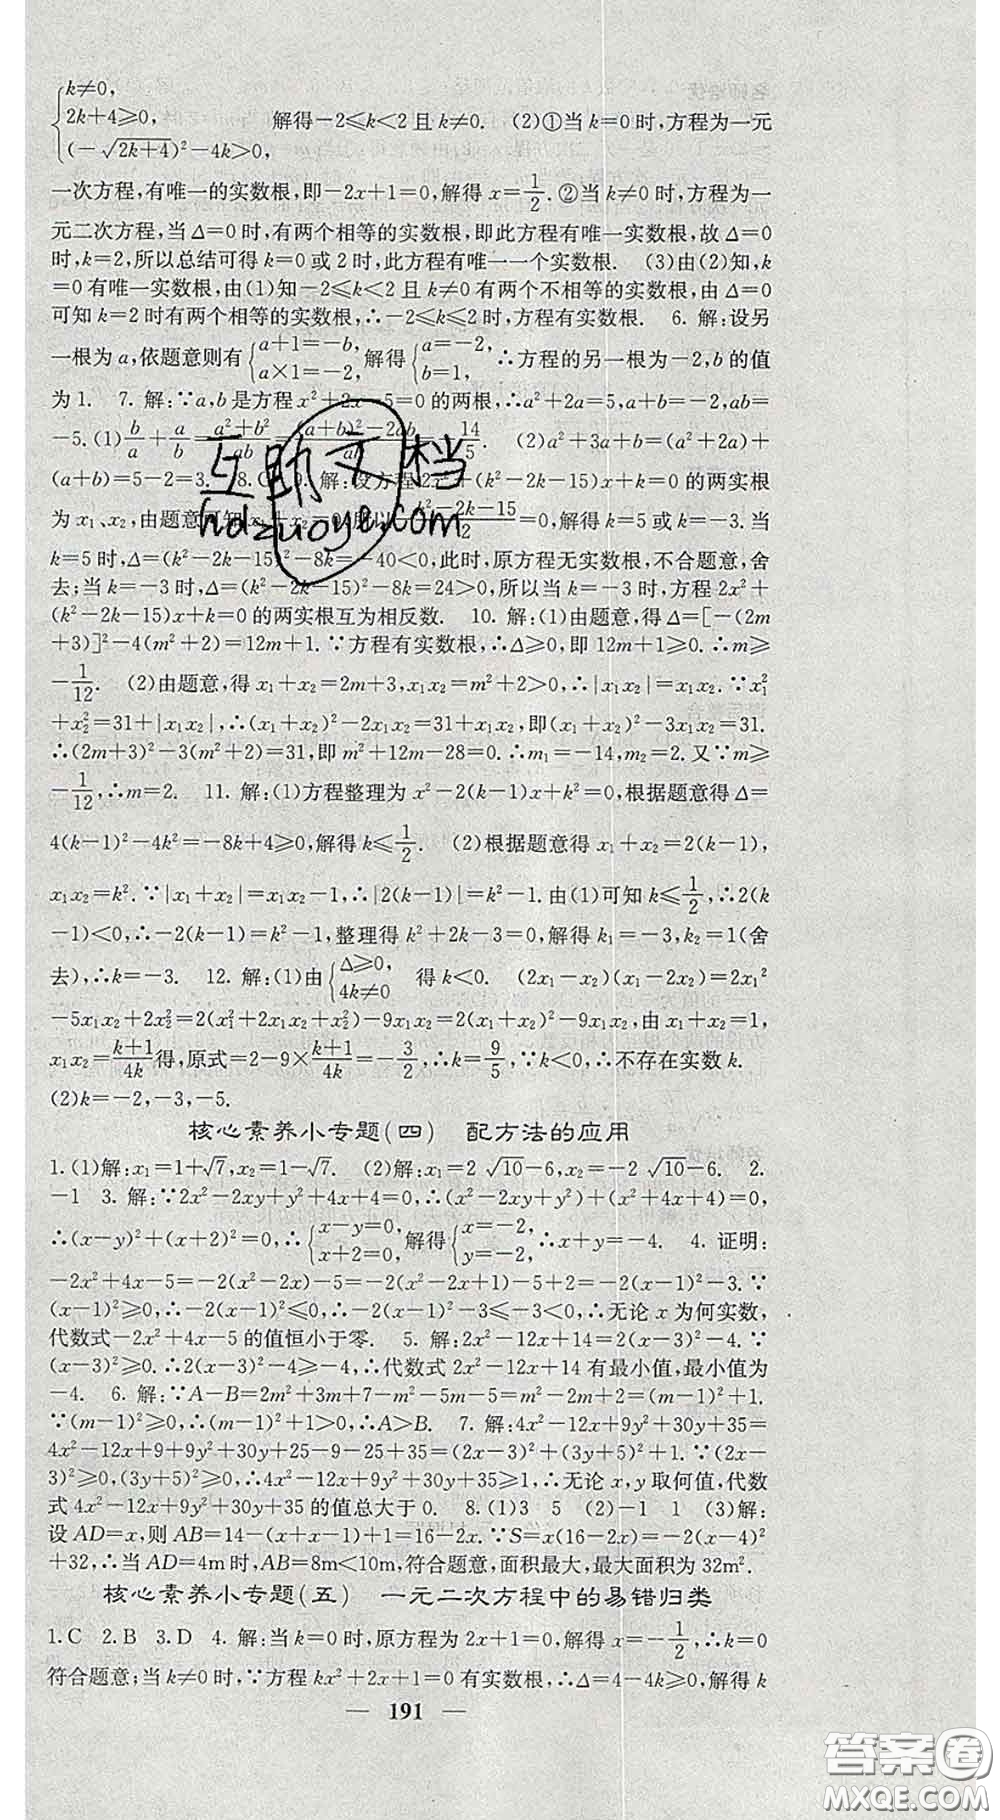 {k≠0,
2k+4≥0, 解得-2≤k<2且k≠0. (2)①当k=0时,方程为一元
(-√(2k+4))²-4k>0,
一次方程,有唯一的实数根,即-2x+1=0,解得x=1/2.②当k≠0时,方程为一
元二次方程,当Δ=0时,有两个相等的实数根,即此方程有唯一实数根,故Δ=0
时,k=2,所以总结可得k=0或2时,此方程有唯一一个实数根. (3)由(2)知,k
=0有唯一实数根,由(1)知-2≤k<2且k≠0有两个不相等的实数根,由Δ=0
可知k=2时有两个相等的实数根,∴-2≤k≤2时,方程有实数根. 6. 解:设另
一根为a,依题意则有{a+1=-b, a×1=-2, 解得{a=-2, b=1, ∴方程的另一根为-2,b的值
为1. 7. 解:∵a,b是方程x²+2x-5=0的两根,∴a²+2a=5,a+b=-2,ab=
-5.(1)b/a+a/b=(a²+b²)/ab=((a+b)²-2ab)/ab=-14/5. (2)a²+3a+b=(a²+2a)+
(a+b)=5-2=3. 8.C 9. 解:设方程2x²+(k²-2k-15)x+k=0的两实根
为x₁、x₂,由题意可知x₁+x₂=0,所以-(k²-2k-15)/2=0,解得k=5或k=-3.当
k=5时,Δ=(k²-2k-15)²-8k=-40<0,此时,原方程无实数根,不合题意,舍
去;当k=-3时,Δ=(k²-2k-15)²-8k=24>0,所以当k=-3时,方程2x²+
(k²-2k-15)x+k=0的两实根互为相反数. 10. 解:(1)由题意,得Δ=[-(2m
+3)]²-4(m²+2)=12m+1.∵方程有实数根,∴Δ≥0,即12m+1≥0.∴m≥
-1/12. (2)由题意,得x₁+x₂=2m+3,x₁x₂=m²+2>0,∴|x₁x₂|=x₁x₂.∵x₁²
+x₂²=31+|x₁x₂|,∴(x₁+x₂)²-2x₁x₂=31+x₁x₂,即(x₁+x₂)²-3x₁x₂=31.
∴(2m+3)²-3(m²+2)=31,即m²+12m-28=0.∴m₁=-14,m₂=2.又∵m≥
-1/12,∴m=2. 11. 解:(1)方程整理为x²-2(k-1)x+k²=0,根据题意得Δ=
4(k-1)²-4k²=-8k+4≥0,解得k≤1/2. (2)根据题意得x₁+x₂=2(k-1),
x₁x₂=k².∵|x₁+x₂|=x₁x₂-1,∴|2(k-1)|=k²-1.由(1)可知k≤1/2,∴2(k
-1)<0,∴-2(k-1)=k²-1,整理得k²+2k-3=0,解得k₁=-3,k₂=1(舍
去),∴k=-3. 12. 解:(1)由{Δ≥0, 4k≠0 得k<0. (2x₁-x₂)(x₁-2x₂)=2x₁²
-5x₁x₂+2x₂²=2(x₁²+2x₁x₂+x₂²)-9x₁x₂=2(x₁+x₂)²-9x₁x₂,由x₁+x₂=1,
x₁x₂=(k+1)/4k得,原式=2-9×(k+1)/4k=-3/2,∴k=9/5,∵k<0,∴不存在实数k.
(2)k=-2,-3,-5.
核心素养小专题(四) 配方法的应用
1.(1)解:x₁=1+√7,x₂=1-√7. (2)解:x₁=2√10-6,x₂=-2√10-6. 2.
-1 3. 解:∵2x²-2xy+y²+4x+4=0,∴(x²-2xy+y²)+(x²+4x+4)=0,
∴(x-y)²+(x+2)²=0,∴{x-y=0, x+2=0, 解得{x=-2, y=-2, ∴x+y=-4. 4. 证明:
-2x²+4x-5=-2(x²-2x)-5=-2(x²-2x+1)-5+2=-2(x-1)²-3.∵
(x-1)²≥0,∴-2(x-1)²≤0,∴-2(x-1)²-3≤-3<0,∴无论x为何实数,
代数式-2x²+4x-5的值恒小于零. 5. 解:2x²-12x+14=2(x-3)²-4.∵
(x-3)²≥0.∴2(x-3)²-4≥-4,∴代数式2x²-12x+14有最小值,最小值为
-4. 6. 解:∵A-B=2m²+3m+7-m²-5m-5=m²-2m+2=(m-1)²+1.
∵(m-1)²≥0,∴(m-1)²+1>0,∴A>B. 7. 解:4x²-12x+9y²+30y+35=
4x²-12x+9+9y²+30y+25-9-25+35=(2x-3)²+(3y+5)²+1.∵(2x-
3)²≥0,(3y+5)²≥0,∴4x²-12x+9y²+30y+35≥1,∴无论x,y取何值,代数
式4x²-12x+9y²+30y+35的值总大于0. 8.(1)3 5 (2)-1 1 (3)解:
设AD=x,则AB=14-(x+x-1)+1=16-2x.∵S=x(16-2x)=-2(x-4)²
+32,∴当AD=4m时,AB=8m<10m,符合题意,面积最大,最大面积为32m².
核心素养小专题(五) 一元二次方程中的易错归类
1.C 2.B 3.D 4. 解:当k=0时,原方程为2x+1=0,解得x=-1/2,∴k=0
符合题意;当k≠0时,∵方程kx²+2x+1=0有实数根,∴Δ=4-4k≥0,解得k
— 191 —
互助文档
hdzuoye.com
答案圈
MXQE.COM